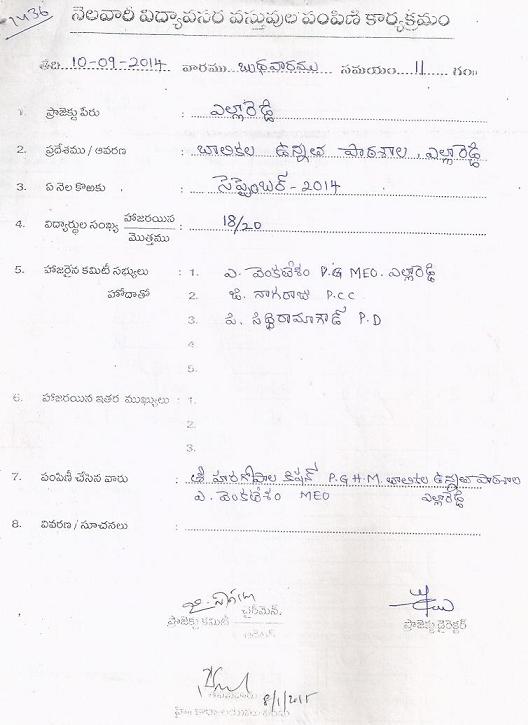 1436
నెలవారీ విద్యావసర వస్తువుల పంపిణి కార్యక్రమం
తేది 10-09-2014 వారము బుధవారము సమయం 11 గం॥
1. ప్రాజెక్టు పేరు : ఎల్లారెడ్డి
2. ప్రదేశము / ఆవరణ : బాలికల ఉన్నత పాఠశాల, ఎల్లారెడ్డి
3. ఏ నెల కొఱకు : సెప్టెంబర్ - 2014
4. విద్యార్థుల సంఖ్య హాజరయిన / మొత్తము : 18/20
5. హాజరైన కమిటీ సభ్యులు : 1. ఎ. వెంకటేశం P.G MEO. ఎల్లారెడ్డి
హోదాతో 2. జి. నాగరాజు P.C.C
3. పి. సిద్ధిరామాగౌడ్ P.D
4.
5.
6. హాజరయిన ఇతర ముఖ్యులు : 1.
2.
3.
7. పంపిణీ చేసిన వారు : శ్రీ హరగోపాల కిషన్ P.G.H.M. బాలికల ఉన్నత పాఠశాల
ఎ. వెంకటేశం MEO ఎల్లారెడ్డి
8. వివరణ / సూచనలు :
ప్రాజెక్టు కమిటీ ఛైర్మెన్. ప్రాజెక్టు డైరెక్టర్
8/1/2015